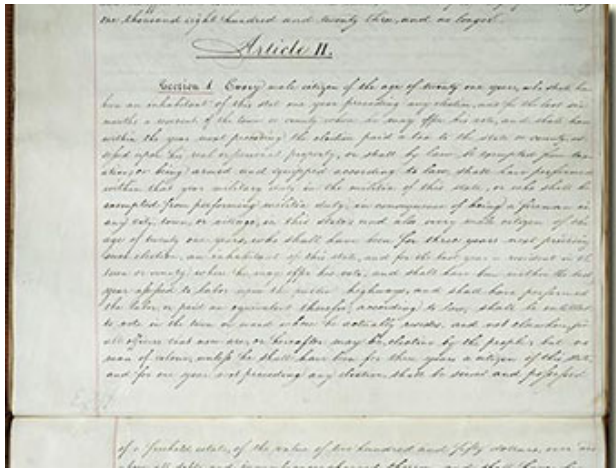 one thousand eight hundred and twenty three, and no longer.
Article II.
Section 1. Every male citizen of the age of twenty one years, who shall have
been an inhabitant of this state one year preceding any election, and for the last six
months a resident of the town or county where he may offer his vote, and shall have
within the year next preceding the election paid a tax to the state or county, as-
sessed upon his real or personal property, or shall by law, be exempted from tax-
ation; or being armed and equipped according to law, shall have performed
within that year military duty in the militia of this state, or who shall be
exempted from performing militia duty in consequence of being a fireman in
any city, town, or village, in this state: and also every male citizen of the
age of twenty one years, who shall have been for three years next preceding
such election, an inhabitant of this state, and for the last year a resident in the
town or county, where he may offer his vote, and shall have been within the last
year assessed to labor upon the public highways, and shall have performed
the labor, or paid an equivalent therefor, according to law; shall be entitled
to vote in the town or ward where he actually resides, and not elsewhere, for
all officers that now are, or hereafter may be, elective by the people; but no
man of colour, unless he shall have been for three years a citizen of this state,
and for one year next preceding any election, shall be seized and possessed
of a freehold estate, of the value of two hundred and fifty dollars, over and
above all debts and incumbrances charged thereon, and shall have been